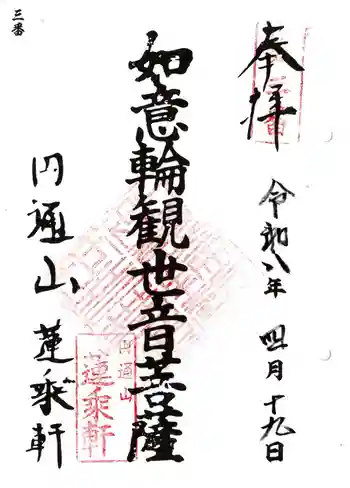 三番
奉拝
令和八年 四月十九日
如意輪観世音菩薩
円通山 蓮乗軒
円通山
蓮乗軒